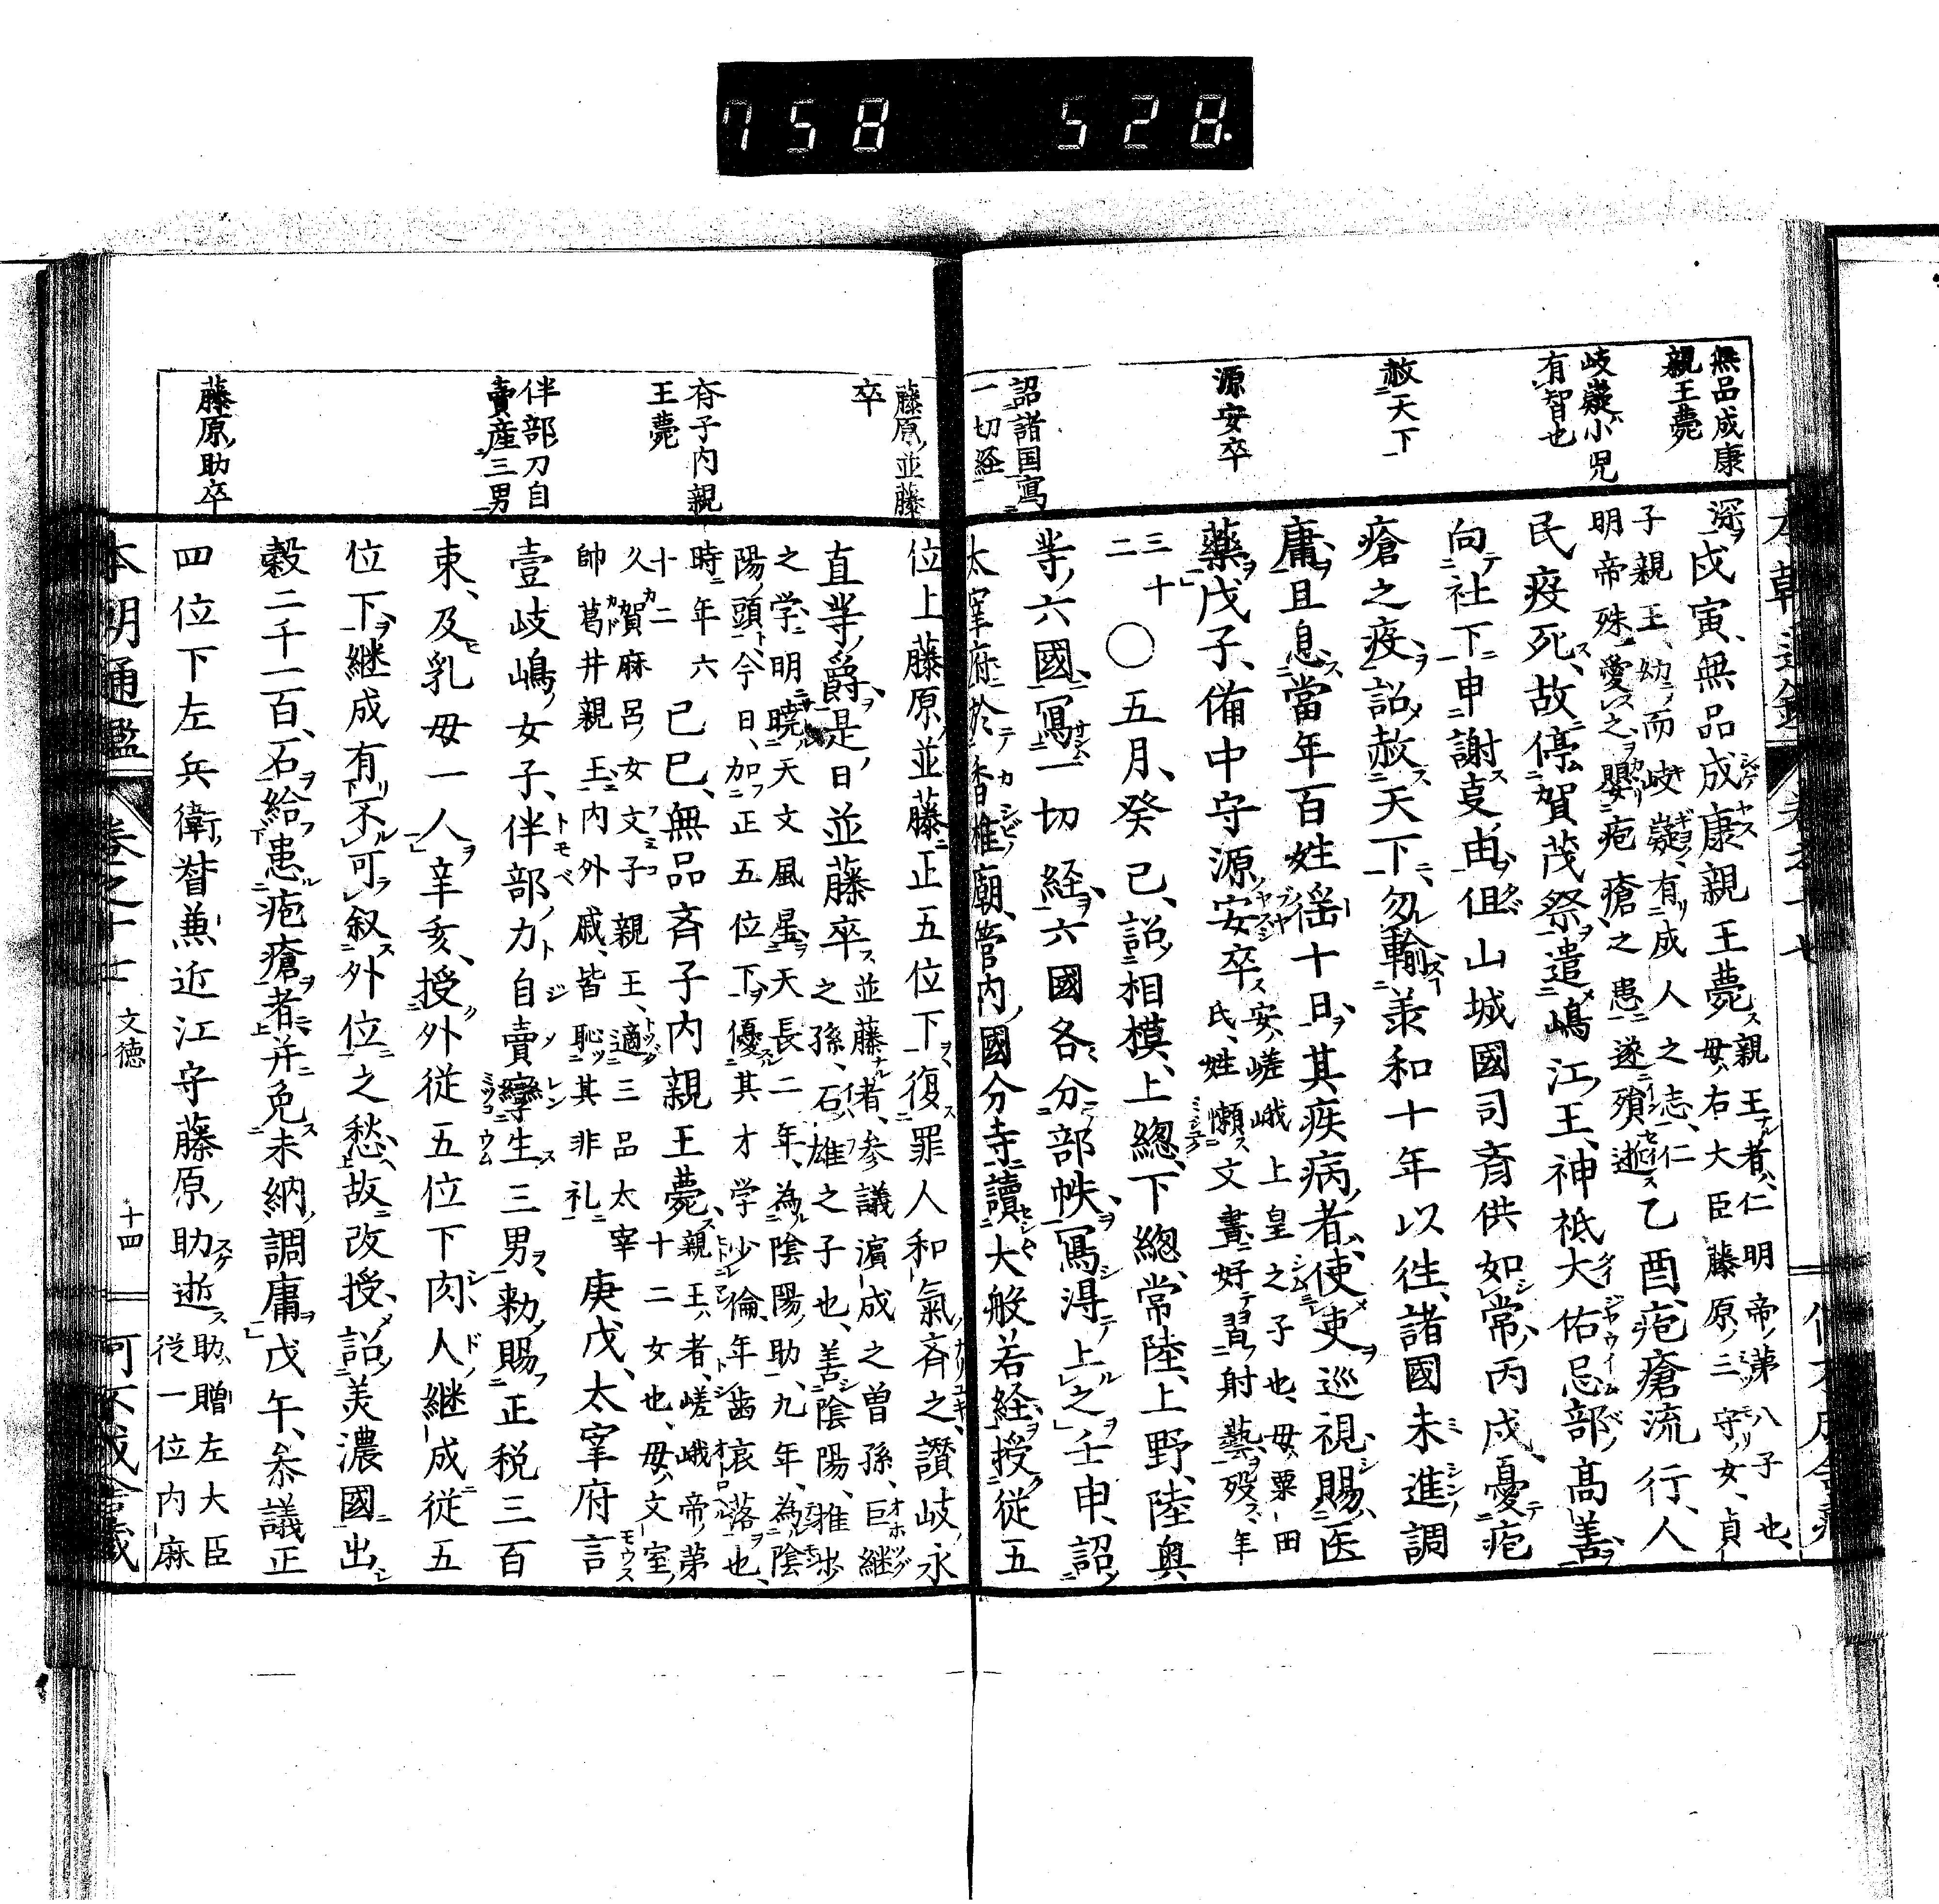 758 528.
無品成康
親王薨
岐嶷小児
有智也
赦天下
源安卒
詔諸国寫
一切経
深戊寅、無品成康親王薨親王者、仁明帝第八子也、
母右大臣藤原三守女、貞
子親王、幼而岐嶷有成人之志、仁
明帝殊愛之、嬰疱瘡之患遂殞逝乙酉、疱瘡流行、人
民疫死、故停賀茂祭、遣嶋江王、神祇大佑忌部高善
向社下申謝㕝由、但山城國司斎供如常、丙戌、憂疱
瘡之疫、詔赦天下、勿輸羕和十年以徃、諸國未進調
庸、且息當年百姓徭十日、其疾病者、使吏巡視賜医
藥戊子、俻中守源安卒安、嵯峨上皇之子也、母粟田
氏、姓懶文書、好習射藝、歿、年
三十
二
〇五月、癸己、詔相模、上総、下総、常陸、上野、陸奥
䓁六國寫一切経、六國各分部帙、寫得上之壬申、詔
太宰府於香椎廟、管内國分寺讀大般若経、授従五
藤原並藤
卒
斎子内親
王薨
伴部刀自
賣産三男
藤原助卒
位上藤原並藤正五位下、復罪人和氣斉之、讃岐永
直䓁爵、是日並藤卒並藤者、参議濵成之曽孫、巨継
之孫、石雄之子也、善陰陽、推歩
之学、明暁天文風星、天長二年、為陰陽助、九年、為陰
陽頭、今日、加正五位下、優其才学少倫、年歯衰落也、
時年六
十二
己巳、無品斉子内親王薨親王者、嵯峨帝第
十二女也、母文室
久賀麻呂女文子親王、適三品太宰
帥葛井親王、内外戚、皆恥其非礼
庚戌、太宰府言
壹岐嶋女子、伴部刀自賣孿生三男、勅賜正税三百
束、及乳母一人、辛亥、授外従五位下肉人継成従五
位下、継成有不可叙外位之愁、故改授、詔美濃國出
穀二千一百石、給患疱瘡者、并免未納調庸、戊午、叅議正
四位下左兵衛督兼近江守藤原助逝助、贈左大臣
従一位内麻
本朝通鑑 巻之十七 文徳 十四